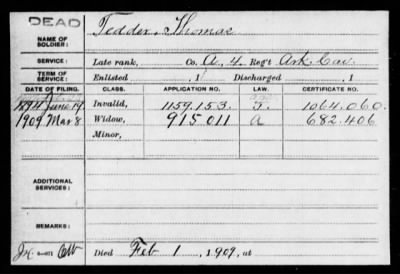 DEAD
NAME OF SOLDIER: Tedder, Thomas
SERVICE: Late rank, Co. A, 4. Reg't Ark Cav.
TERM OF SERVICE: Enlisted , 1 Discharged , 1
DATE OF FILING. CLASS. APPLICATION NO. LAW. CERTIFICATE NO.
1894 June 19 Invalid, 1159.153. 1064.060.
1909 Mar 8 Widow, 915 011 a 682.406
Minor,
ADDITIONAL SERVICES:
REMARKS:
Died Feb 1, 1909, at